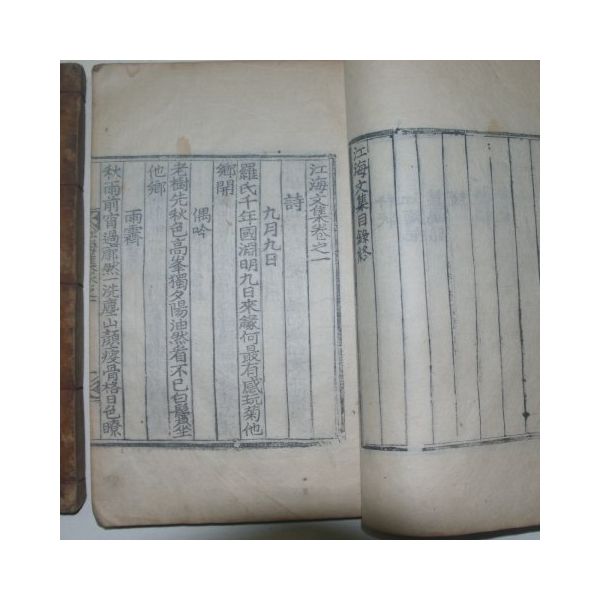 江海文集目錄終
江海文集卷之一
詩
九月九日
羅氏千年國淵明九日來緣何最有感玩菊他
鄉開
偶吟
老樹先秋色高峯獨夕陽油然看不已白鬢坐
他鄉
雨霽
秋雨前宵過廓然一洗塵山顏瘦骨格日色暸